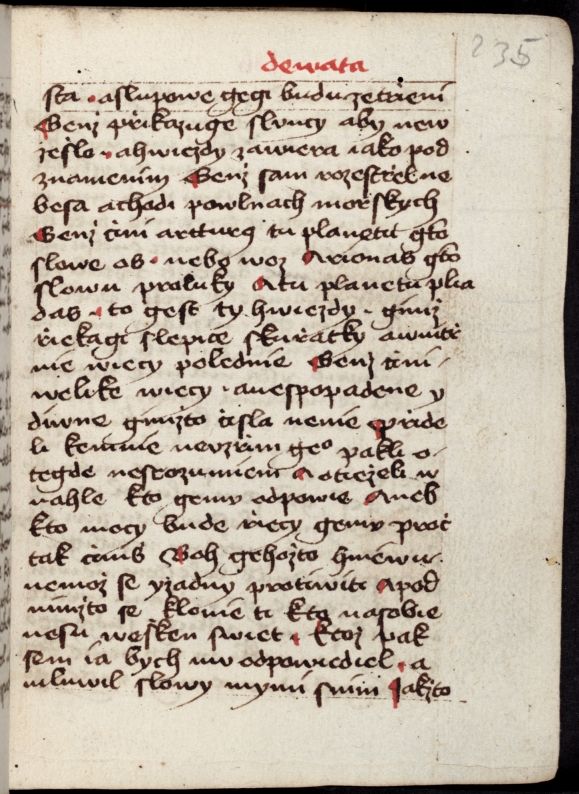 dewata
235
sta · aslupowe gegi budu zetrieni
Genz přikazuge slūcy aby new
zešlo · ahwiezdy zawiera iako pod
znamenim Genz sam rozestřel ne
besa achodi powlnach mořskych
Genz čini artturg tu planetu gto
slowe os · nebo woz Arionas gto
slowu proluky Atu planetu plia
das · to gest ty hwiezdy · gimz
řiekagi slepice skuratky awnitř
nie wiecy polednie Genz čini
welike wiecy · anespopadene y
diwne gimizto čisla nenie přide
li kemnie nevzrim geo pakli o-
tegde nesrozumiem Aotieželi w
nahle kto gemu odpowie Aneb
kto mocy bude řiecy gemu proč
tak činis Boh gehožto hniewu
nemoz se yžadny protiwiti Apod
nimžto se klonie ti kto nasobie
nesu wešken swiet · ktoz pak
sem ia bych mu odpowiediel · a
mluwil slowy mymi snim Jakžto